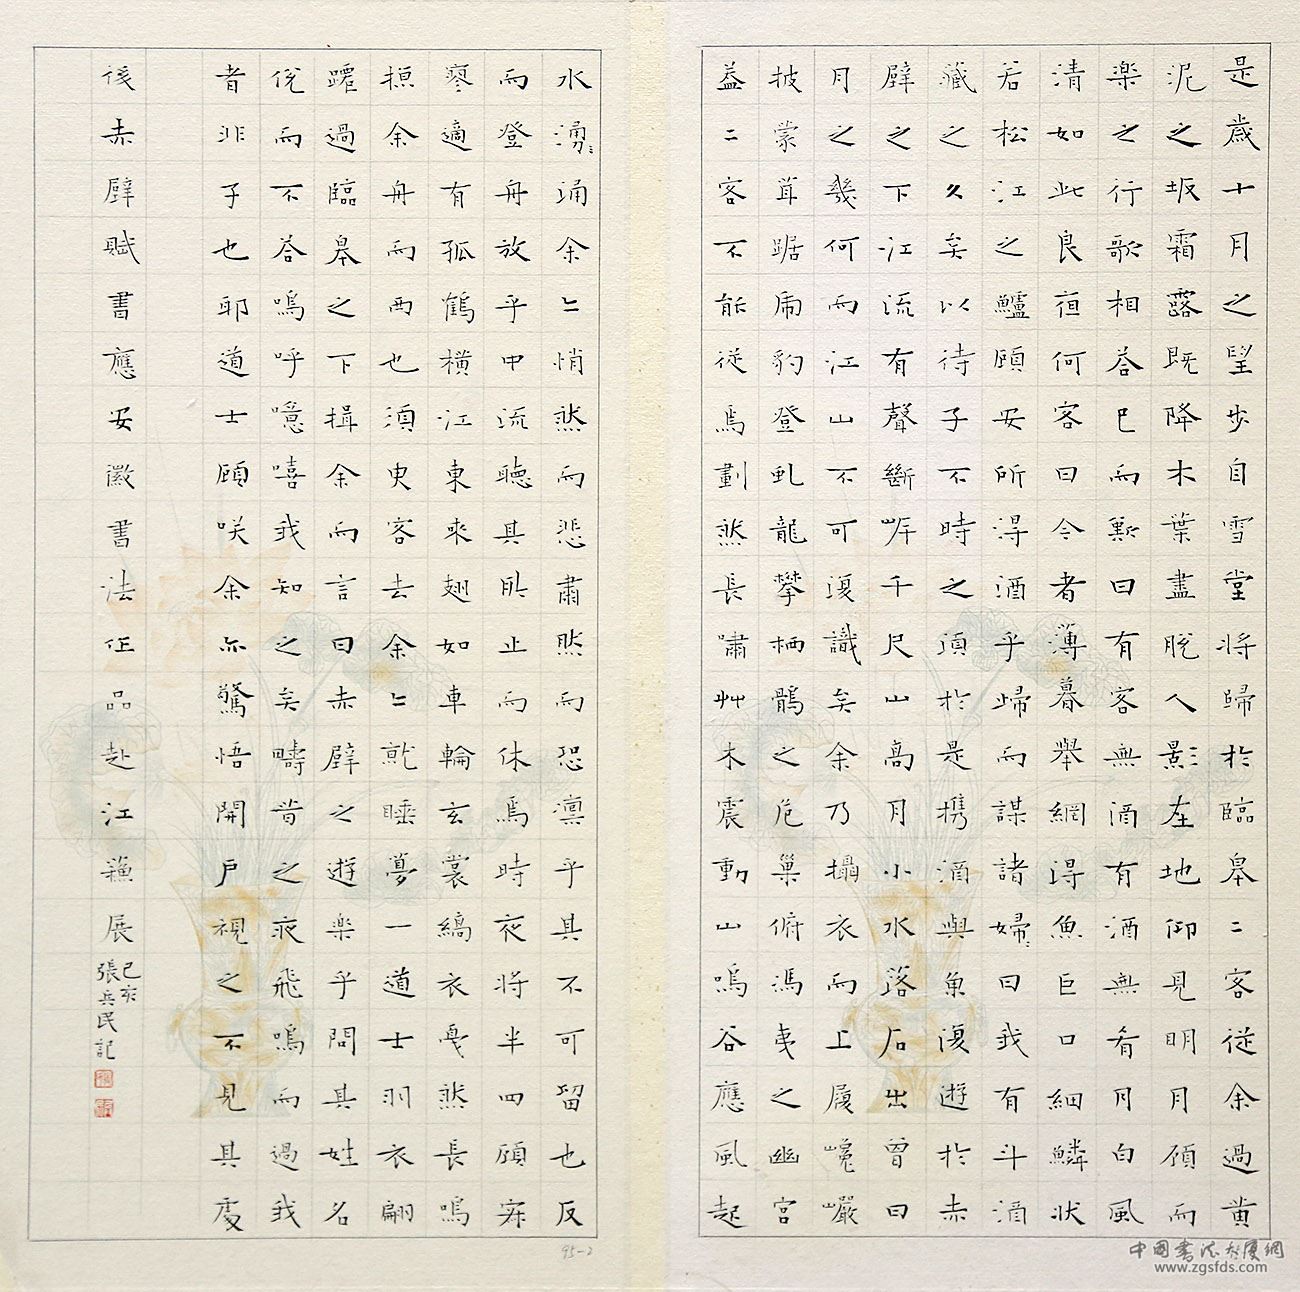 是歲十月之望步自雪堂將歸於臨皋二客從余過黃
泥之坂霜露既降木葉盡脫人影在地仰見明月顧而
楽之行歌相答已而歎曰有客無酒有酒無肴月白風
清如此良夜何客曰今者薄暮舉網得魚巨口細鱗狀
若松江之鱸顧安所得酒乎歸而謀諸婦〻曰我有斗酒
藏之久矣以待子不時之須於是携酒與魚復遊於赤
壁之下江流有聲斷岸千尺山高月小水落石出曾日
月之幾何而江山不可復識矣余乃攝衣而上履巉巖
披蒙茸踞虎豹登虬龍攀栖鶻之危巢俯馮夷之幽宮
蓋二客不能從焉劃然長嘯艸木震動山鳴谷應風起
水湧涌余亦悄然而悲肅然而恐凜乎其不可留也反
而登舟放乎中流聽其所止而休焉時夜將半四顧寂
寥適有孤鶴橫江東來翅如車輪玄裳縞衣戛然長鳴
掠余舟而西也須臾客去余亦就睡夢一道士羽衣翩
躚過臨皋之下揖余而言曰赤壁之遊楽乎問其姓名
俛而不答嗚呼噫嘻我知之矣疇昔之夜飛鳴而過我
者非子也耶道士顧咲余亦驚悟開戶視之不見其處
後赤壁賦書應安徽書法作品赴江蘇展
己亥
張兵民記
95-2
中国书法大厦網
www.zgsfds.com